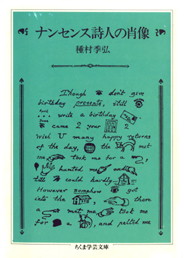 ナンセンス詩人の肖像
種村季弘
Though don't give
birthday presents, still
write a birthday
came 2 your
wish U many happy returns
of the day, the
took me for a
hunted me
till could hardly
However somehow got
into the
a me
for and pelted me
ちくま学芸文庫